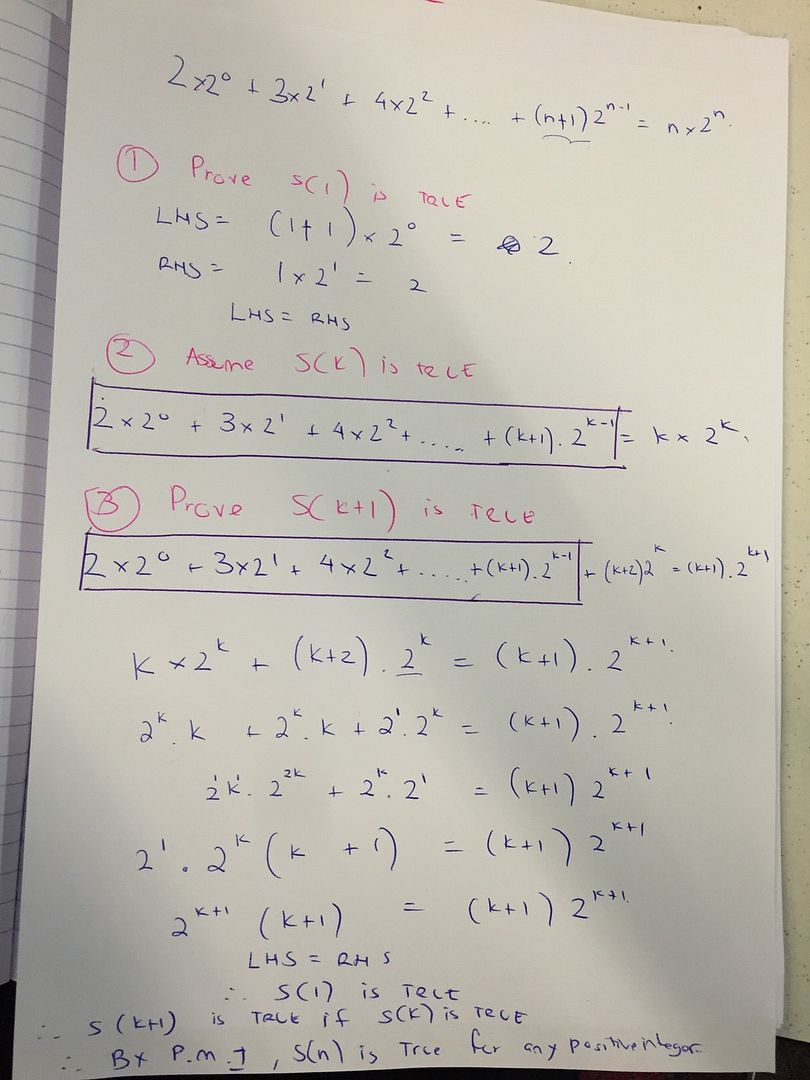 2×2⁰ + 3×2¹ + 4×2² + .... + (n+1)2ⁿ⁻¹ = n×2ⁿ.
① Prove S(1) is TRUE
LHS = (1+1)×2⁰ = 2.
RHS = 1×2¹ = 2
LHS = RHS
② Assume S(k) is TRUE
2×2⁰ + 3×2¹ + 4×2² + ..... + (k+1).2ᵏ⁻¹ = k×2ᵏ.
③ Prove S(k+1) is TRUE
2×2⁰ + 3×2¹ + 4×2² + ..... + (k+1).2ᵏ⁻¹ + (k+2)2ᵏ = (k+1).2ᵏ⁺¹
k×2ᵏ + (k+2).2ᵏ = (k+1).2ᵏ⁺¹.
2ᵏ.k + 2ᵏ.k + 2¹.2ᵏ = (k+1).2ᵏ⁺¹.
2¹k¹.2²ᵏ + 2ᵏ.2¹ = (k+1)2ᵏ⁺¹
2¹.2ᵏ(k+1) = (k+1)2ᵏ⁺¹
2ᵏ⁺¹(k+1) = (k+1)2ᵏ⁺¹.
LHS = RHS
∴ S(1) is TRUE
∴ S(k+1) is TRUE if S(k) is TRUE
∴ By P.M.I, S(n) is True for any positive integor.